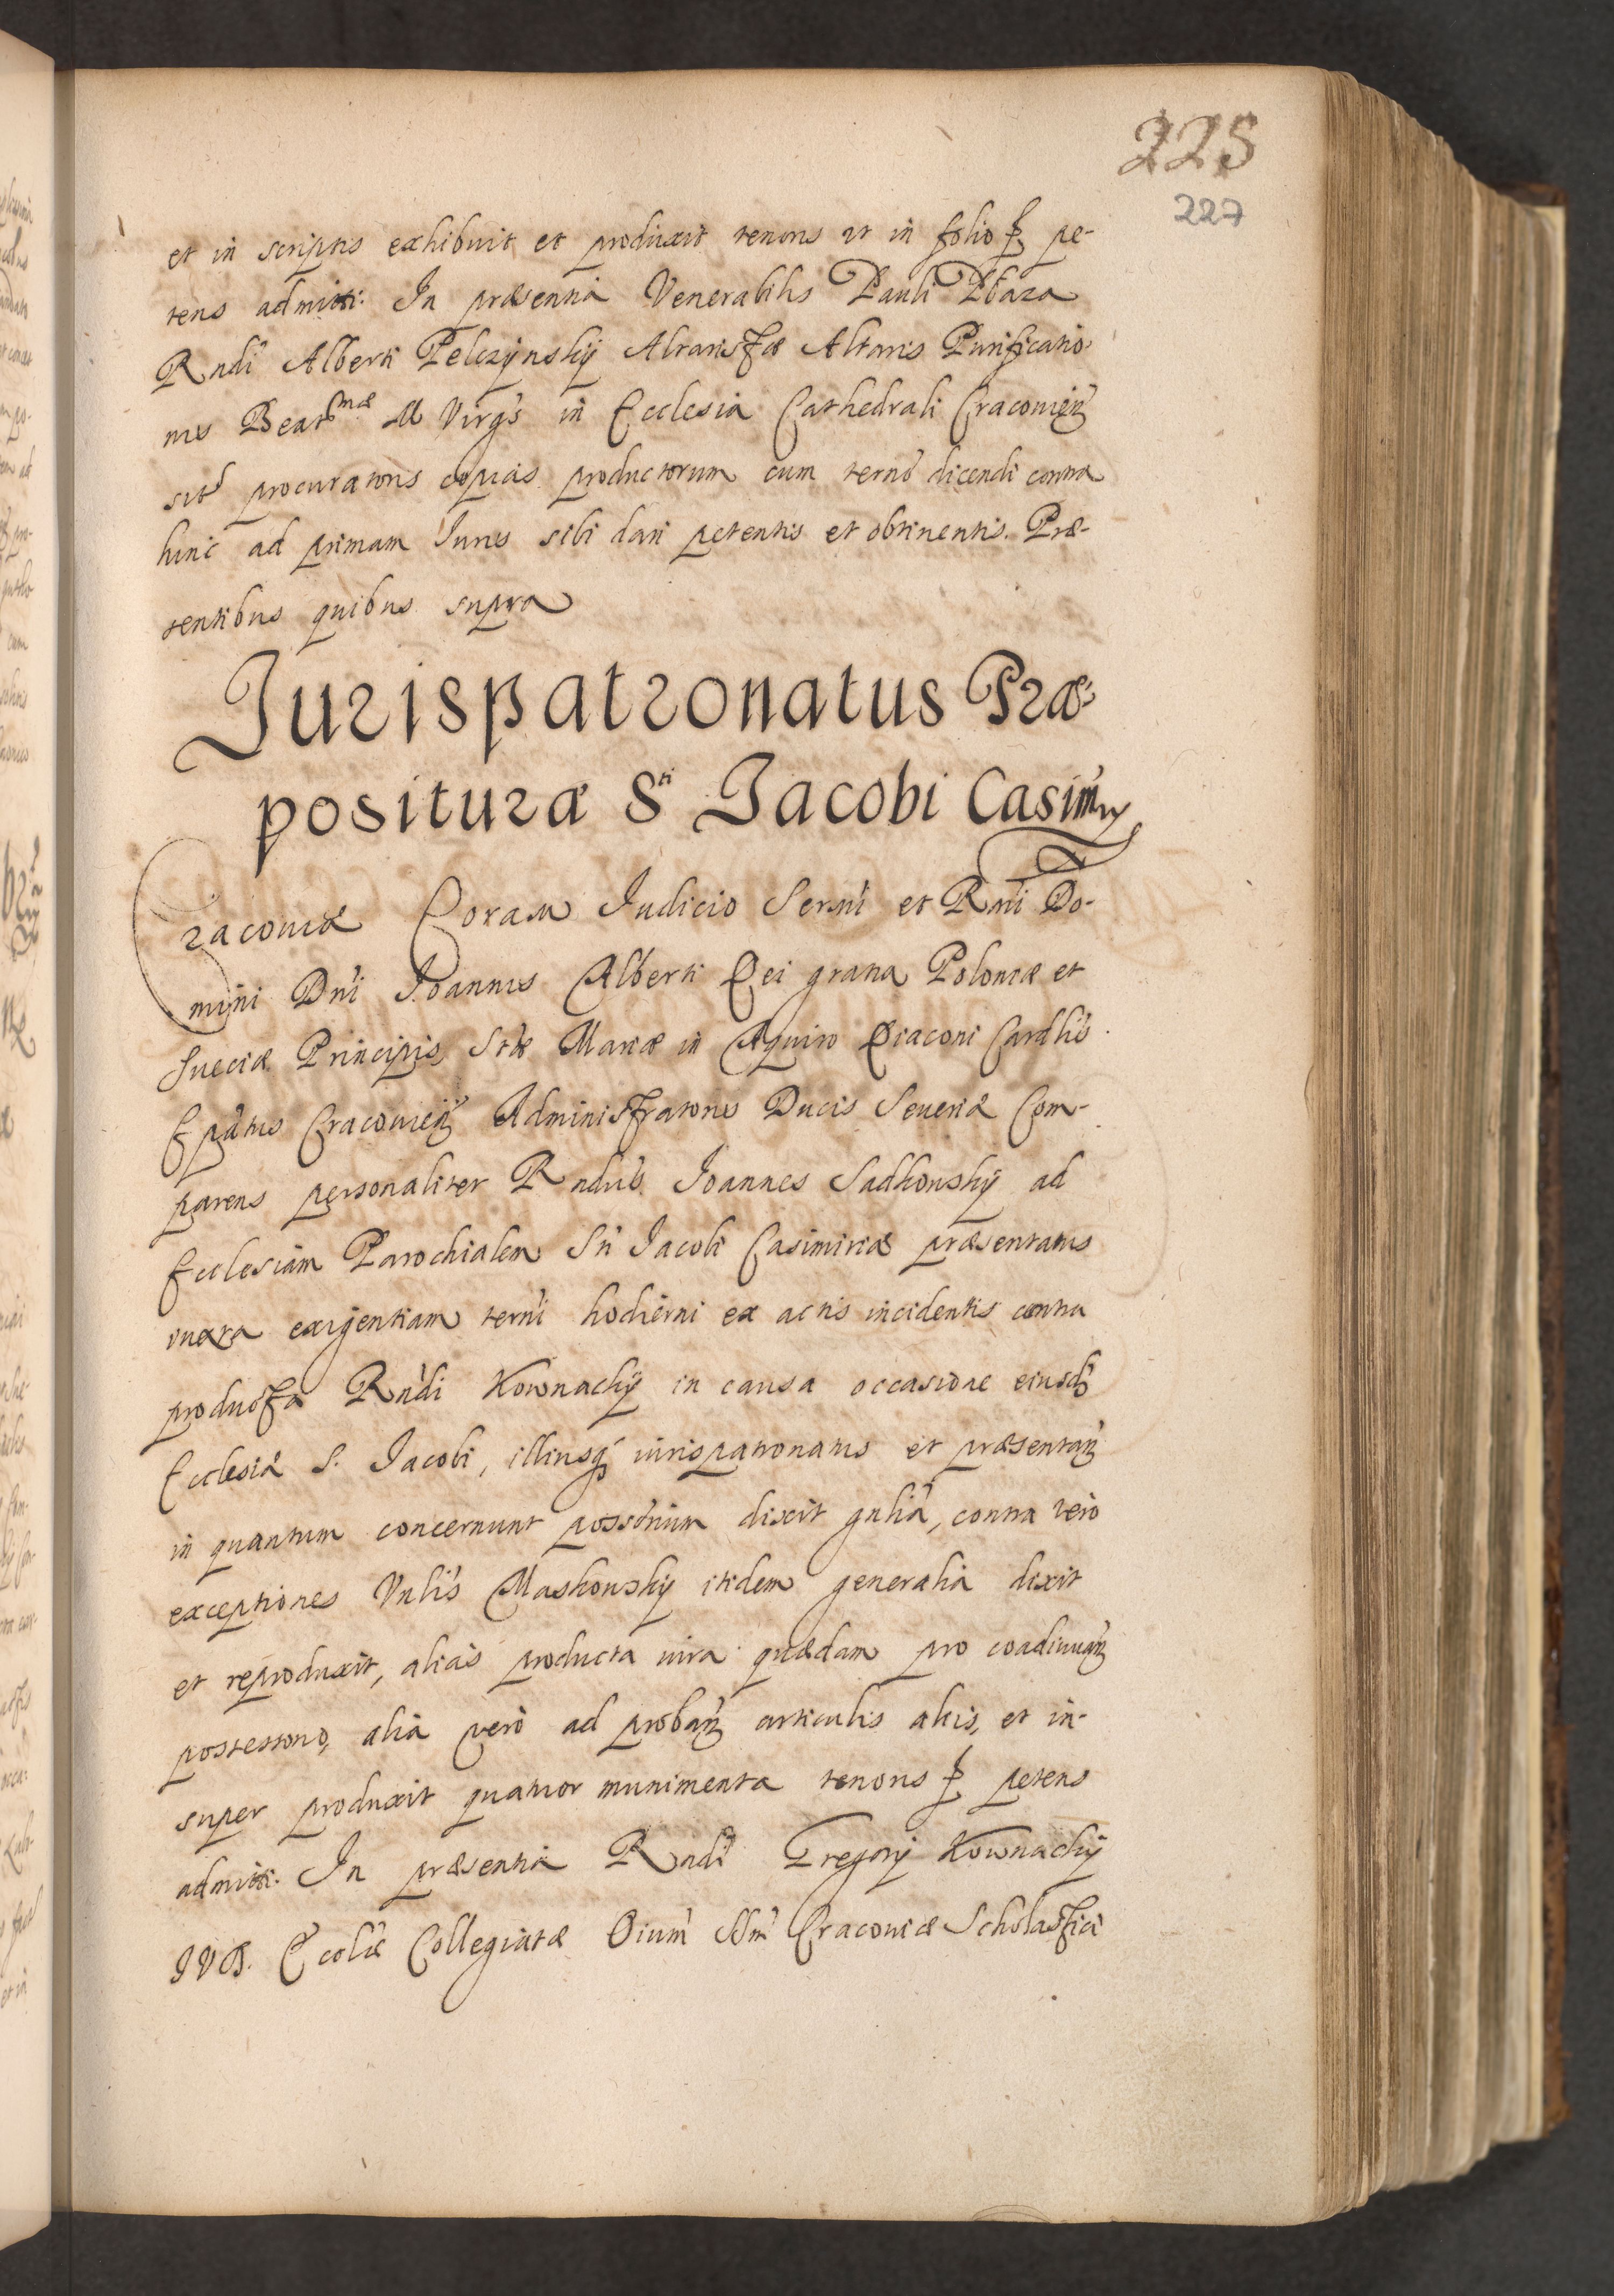 225
227
et in scriptis exhibuit et produxit tenoris ut in folio pe-
tens admitti. In præsentia Venerabilis Pauli Pbaza
Rndi Alberti Pelczÿnskÿ Altaristæ Altaris Purificatio-
nis Beatmæ M Virgs in Ecclesia Cathedrali Cracovien
procuratoris copias productorum cum termo dicendi contra
hinc ad primam Iuris sibi dari petentis et obtinentis. Præ-
sentibus quibus supra
Jurispatronatus Præ-
positura Sti Jacobi Casimiry
Cracoviæ Coram Iudicio Sermi et Rmi Do-
mini Dni Ioannis Alberti Dei gratia Poloniæ et
Sueciæ Principis Stæ Mariæ in Aquiro Diaconi Cardlis
Epatus Cracovien Administratoris Ducis Severiæ Com-
parens personaliter Rndus Ioannes Sadkowskÿ ad
Ecclesiam Parochialem Sti Iacobi Casimiriæ præsentatus
iuxta exigentiam termi hodierni ex actis incidentis contra
producta Rndi Kownackÿ in causa occasione eiusd
Ecclesiæ S. Iacobi, illiusq iurispatronatus et præsentan
in quantum concernunt possorium dixit gnlia, contra vero
exceptiones Vnlis Maskowskÿ itidem generalia dixit
et reproduxit, alias producta iura quædam pro coadiuuan
possessorio, alia vero ad proban articulis aliis, et in-
super produxit quatuor munimenta tenoris petens
admitti. In præsentia Rndi Gregorÿ Kownackÿ
IVD. Ecclæ Collegiatæ Oium SSm Cracoviæ Scholastici